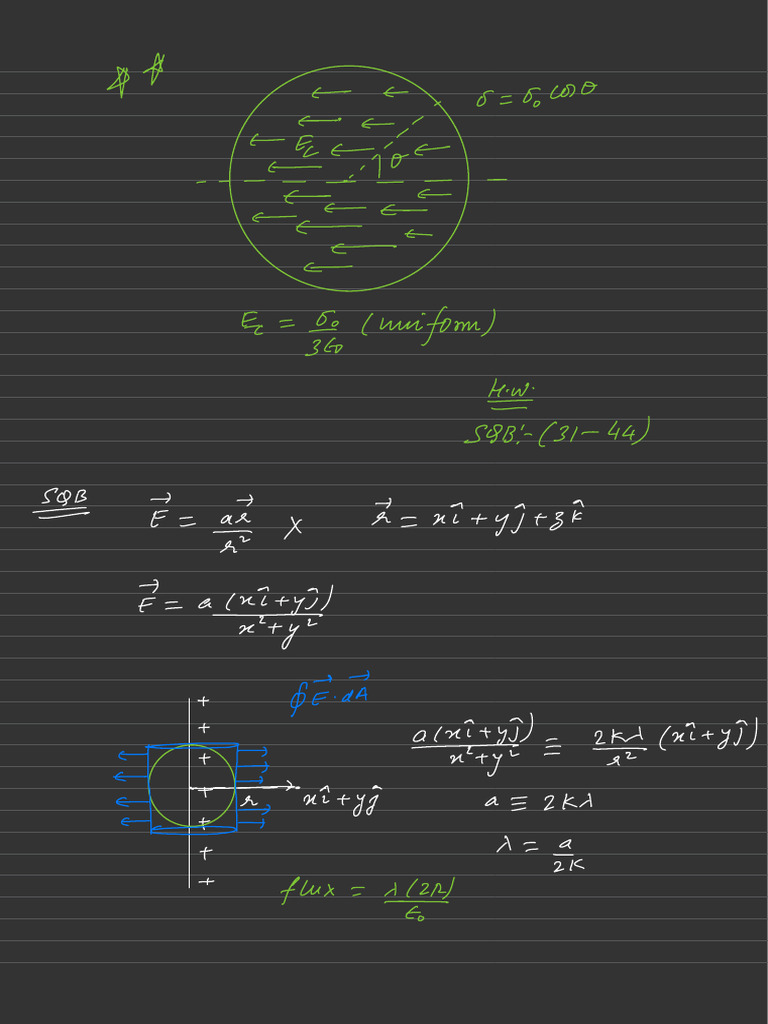 ☆ ☆
σ = σ₀ cosθ
E_c
θ
E_c = σ₀/3ε₀ (uniform)
H.W.
SQB:- (31-44)
SQB
E⃗ = ar⃗/r² X r⃗ = xî + yĵ + zk̂
E⃗ = a(xî + yĵ)/x² + y²
∮E⃗·dA⃗
a(xî + yĵ)/x² + y² ≡ 2Kλ/r² (xî + yĵ)
r xî + yĵ
a ≡ 2Kλ
λ = a/2K
flux = λ(2R)/ε₀